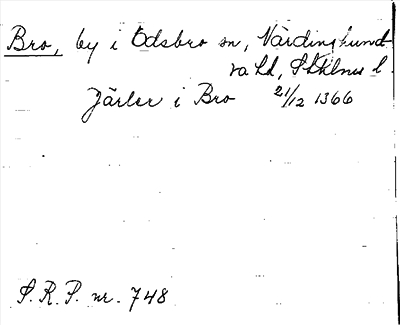 Bro, by i Edsbro sn, Närdinghund-
ra hd, Sthlms l.
Järler i Bro 21/12 1366
S.R.P. nr. 748